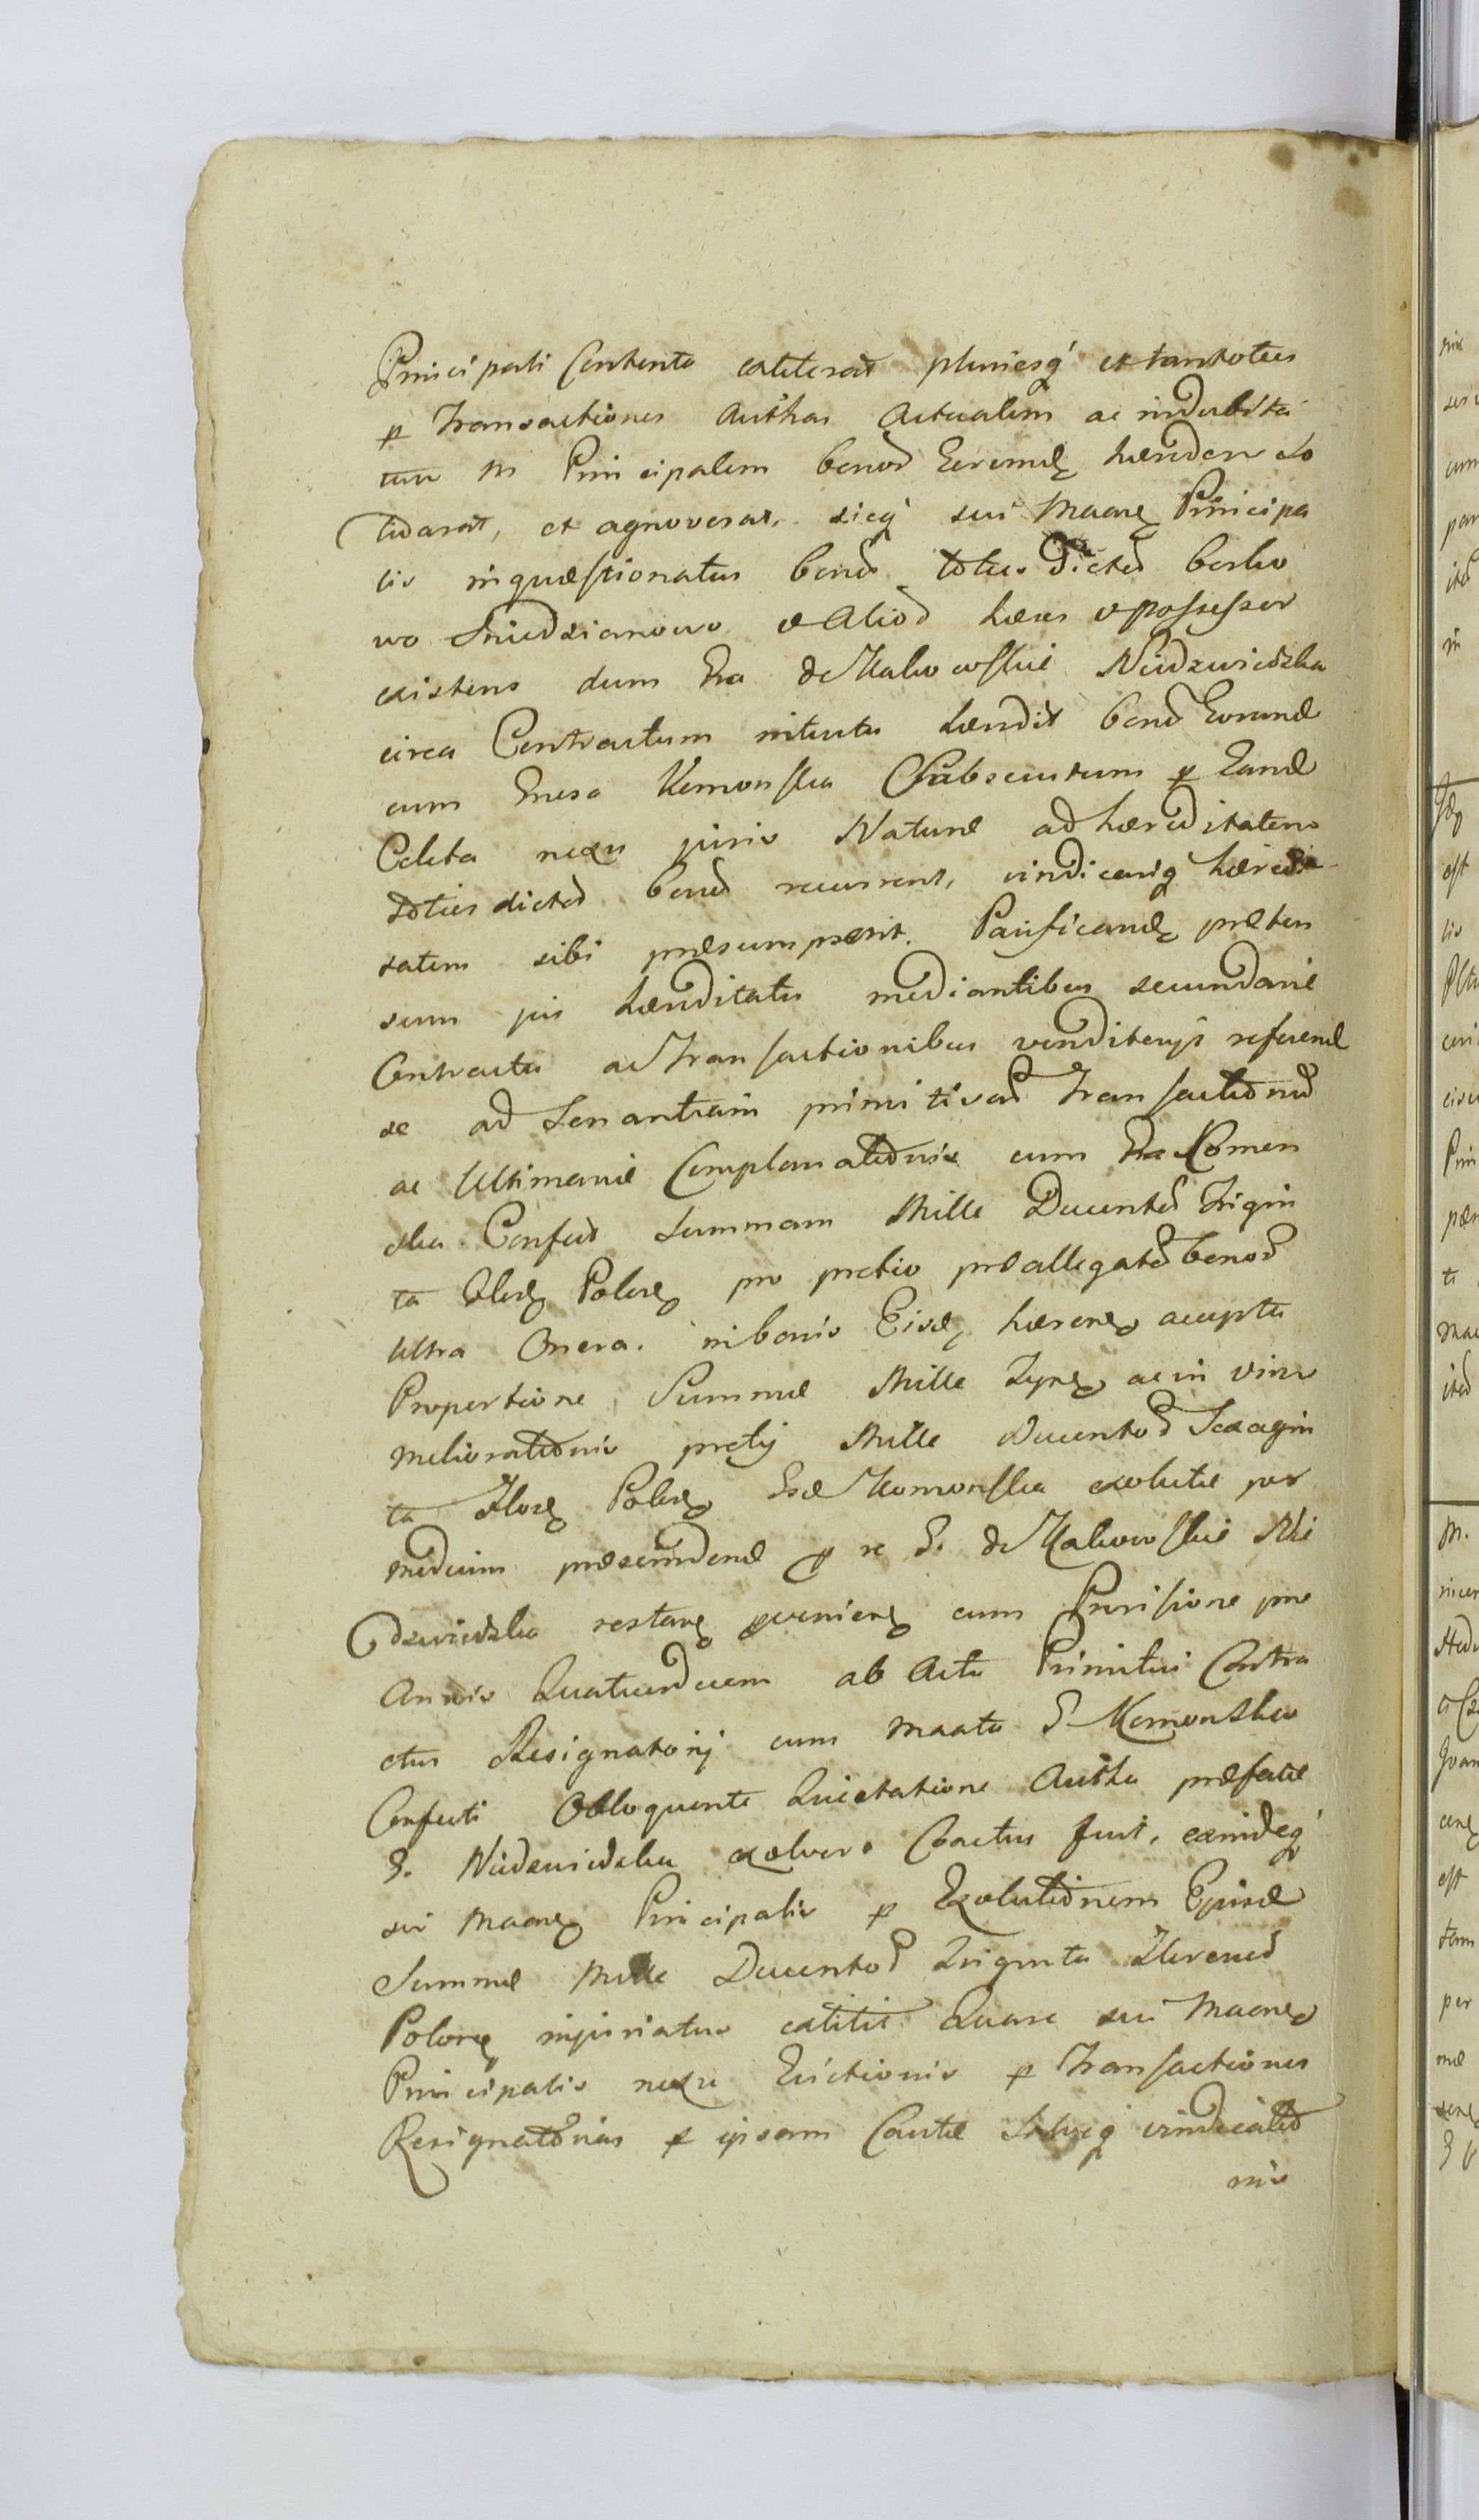 Principali Contenta extiterat pluriesq́ et tantoties
p Transactiones Authas Actualem ac indubita
tum M Principalem bonoꝝ Eorundꝫ hæredem So
lidarat, et agnoverat, sicq́ sui Maanꝫ Principa
lis inquæstionatus bonoꝝ toties dictoꝝ Borko
wo Sniedzianowo & Alioꝝ hæres & possessor
existens dum Gsa de Makowskie Niedzwiedzka
circa Contractum initutu hæredit bonoꝝ Eorund
cum Gnesa Komonska subsecutum p Eand
Celeta nexu juris Naturæ ad hæreditatem
toties dictoꝝ bonoꝝ recurrent, vindicariq hæredi
tatem sibi præsumpserit. Pacificandꝫ præten
sum jus hæreditatis mediantibus secundarie
Contractu ac Transactionibus venditorijs referend
se ad Senantiam primitivaꝝ Transactionuꝝ
ac Ultimarie Complanationis cum Gsa Komon
ska Confect Summam Mille Ducentoꝝ Trigin
ta Florꝫ Polonꝫ pro pretio præallegatoꝝ bonoꝝ
Ultra Onera inbonis Eisdꝫ hærenꝫ accepta
Proportione Summæ Mille Tynfꝫ ac in vim
meliorationis pretij Mille Ducentoꝝ Sexagin
ta Florꝫ Polonꝫ Gsæ Komonska exolutæ per
medium præscindend p re G. de Makowskie Nie
dzwiedzka restanꝫ pvenienꝫ cum Provisione pro
Annis Quatuordecem ab Actu Primitivi Contra
ctus Resignatorij cum Maato G Komonsko
Confecti Obloquente Quietatione Autha præfatæ
G. Niedzwiedzka exolvere Coactus fuit, eamidꝫq́
sui Maanꝫ Principalis p Exolutionem Ejusd
Summæ Mille Ducentoꝝ Triginta Florenoꝝ
Polonꝫ injuriatus extitit Quare sui Maanꝫ
Principalis nexu Evictionis p Transactiones
Resignatorias p ipsam Cautæ Salvæq vindicatio
nis